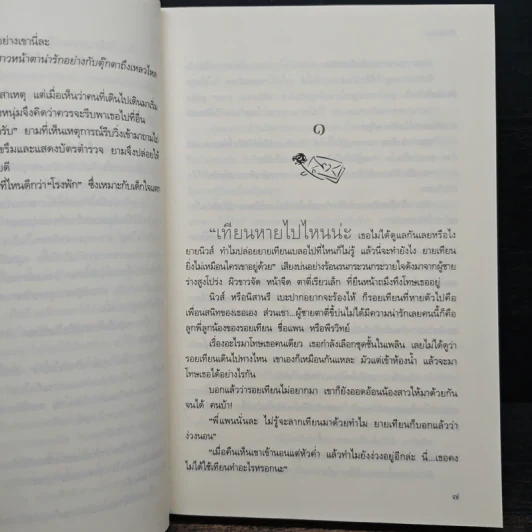 อย่างเขานี่ละ
าวหน้าตาน่ารักอย่างกับตุ๊กตาถึงเหลวไหล
สาเหตุ แต่เมื่อเห็นว่าคนที่เดินไปเดินมาเริ่ม
งหนุ่มจึงคิดว่าควรจะรีบพาเธอไปที่อื่น
ครับ” ยามที่เห็นเหตุการณ์รีบวิ่งเข้ามาถามไถ่
ขรึมและแสดงบัตรตำรวจ ยามจึงปล่อยให้
ยดี
ที่ไหนดีกว่า “โรงพัก” ซึ่งเหมาะกับเด็กใจแตก
๑
“เทียนหายไปไหนน่ะ เธอไม่ได้ดูแลกันเลยหรือไง
ยายนิวส์ ทำไมปล่อยยายเทียนเบลอไปที่ไหนก็ไม่รู้ แล้วนี่จะทำยังไง ยายเทียน
ยิ่งไม่เหมือนใครเขาอยู่ด้วย” เสียงบ่นอย่างร้อนรนกระวนกระวายใจดังมาจากผู้ชาย
ร่างสูงโปร่ง ผิวขาวจัด หน้าจืด ตาตี่เรียวเล็ก ที่ยืนหน้าถมึงทึงโทษเธออยู่
นิวส์ หรือนิสานรี เบะปากอยากจะร้องไห้ ก็รอยเทียนที่หายตัวไปคือ
เพื่อนสนิทของเธอเอง ส่วนเขา...ผู้ชายตาตี่ขี้บ่นไม่ได้มีความน่ารักเลยคนนี้ก็คือ
ลูกพี่ลูกน้องของรอยเทียน ชื่อแพน หรือพีรวิทย์
เรื่องอะไรมาโทษเธอคนเดียว เธอกำลังเลือกชุดชั้นในเพลิน เลยไม่ได้ดูว่า
รอยเทียนเดินไปทางไหน เขาเองก็เหมือนกันแหละ มัวแต่เข้าห้องน้ำ แล้วจะมา
โทษเธอได้อย่างไรกัน
บอกแล้วว่ารอยเทียนไม่อยากมา เขาก็ยังออดอ้อนน้องสาวให้มาด้วยกัน
จนได้ คนบ้า!
“พี่แพนนั่นละ ไม่รู้จะลากเทียนมาด้วยทำไม ยายเทียนก็บอกแล้วว่า
ง่วงนอน”
“เมื่อคืนเห็นเขาเข้านอนแต่หัวค่ำ แล้วทำไมยังง่วงอยู่อีกล่ะ นี่...เธอคง
ไม่ได้ใช้เทียนทำอะไรหรอกนะ”
๗